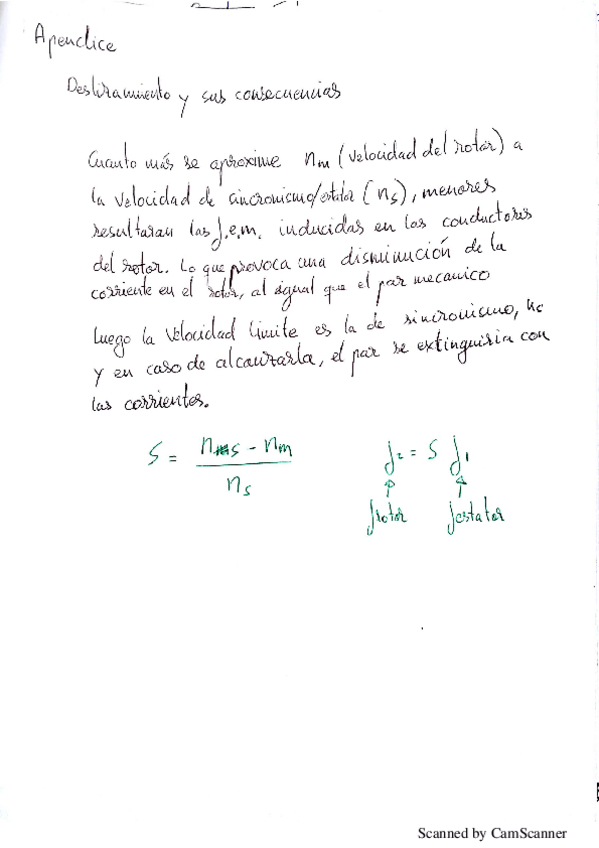 Apendice
Deslizamiento y sus consecuencias
Cuanto más se aproxime nm (velocidad del rotor) a
la velocidad de sincronismo/estator (ns), menores
resultaran las f.e.m. inducidas en los conductores
del rotor. Lo que provoca una disminución de la
corriente en el rotor, al igual que el par mecanico
luego la velocidad limite es la de sincronismo, nc
y en caso de alcanzarla, el par se extinguiria con
las corrientes.
S = (ns - nm) / ns
f2 = S f1
frotor festator
Scanned by CamScanner